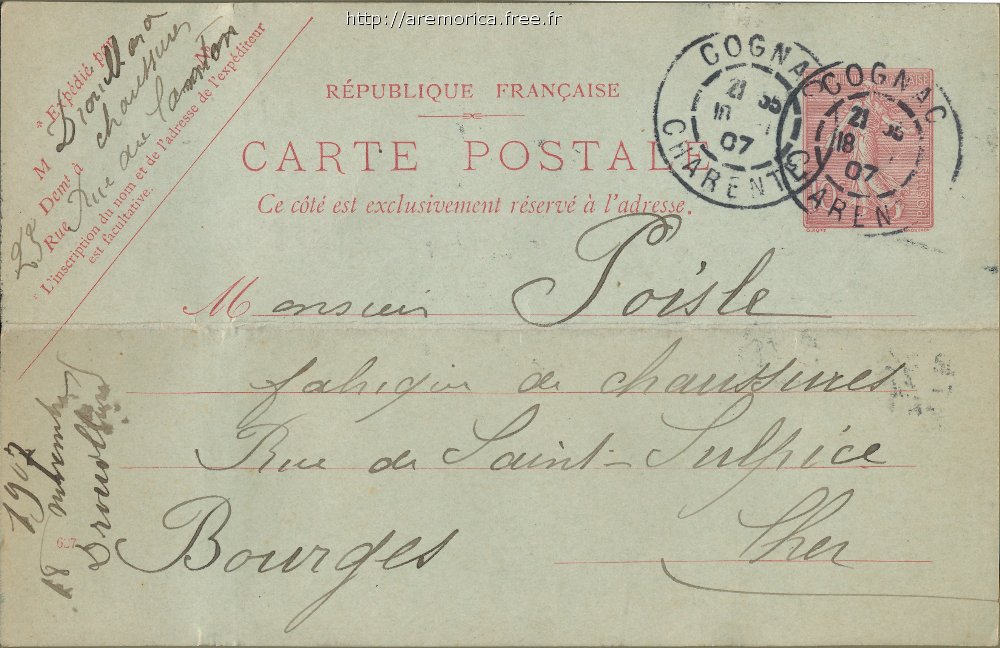 http://aremorica.free.fr
RÉPUBLIQUE FRANÇAISE
CARTE POSTALE
Ce côté est exclusivement réservé à l'adresse.
* Expédié par
M
Demt à chaussures
25 Rue Rue du
* L'inscription du nom et de l'adresse de l'expéditeur
est facultative.
COGNAC
21 35
18
07
CHARENTE
COGNAC
21 35
18
07
CHAREN
Monsieur Poisle
fabrique de chaussures
Rue de Saint-Sulpice
Bourges Cher
1907
18 novembre
607